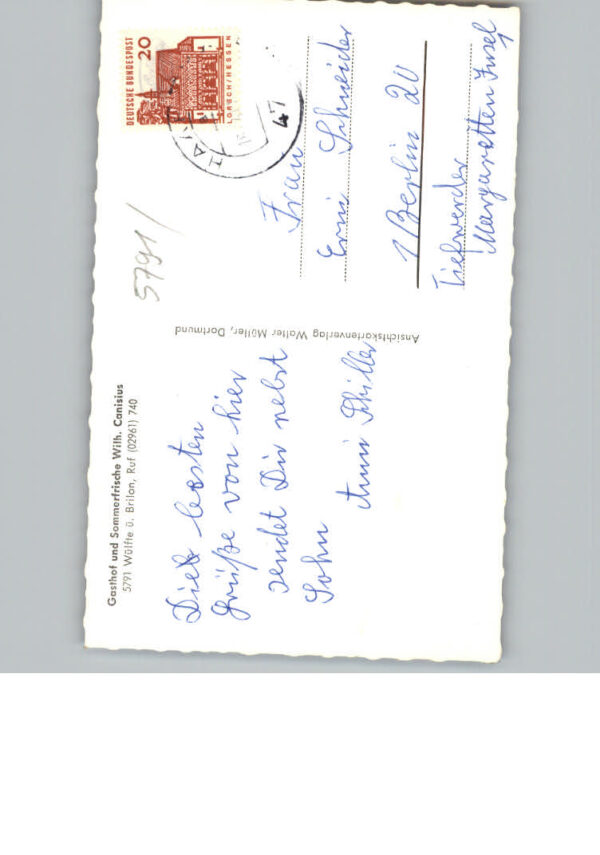 Gasthof und Sommerfrische Wilh. Canisius
5791 Wülfte ü. Brilon, Ruf (02961) 740
Die besten
Grüße von hier
sendet Dir nebst
Sohn
Anni Schiller
Ansichtskartenverlag Walter Müller, Dortmund
5791/
DEUTSCHE BUNDESPOST
20
LORSCH/HESSEN
47
Frau
Erni Schneider
1 Berlin 20
Tiefwerder
Margareten Insel